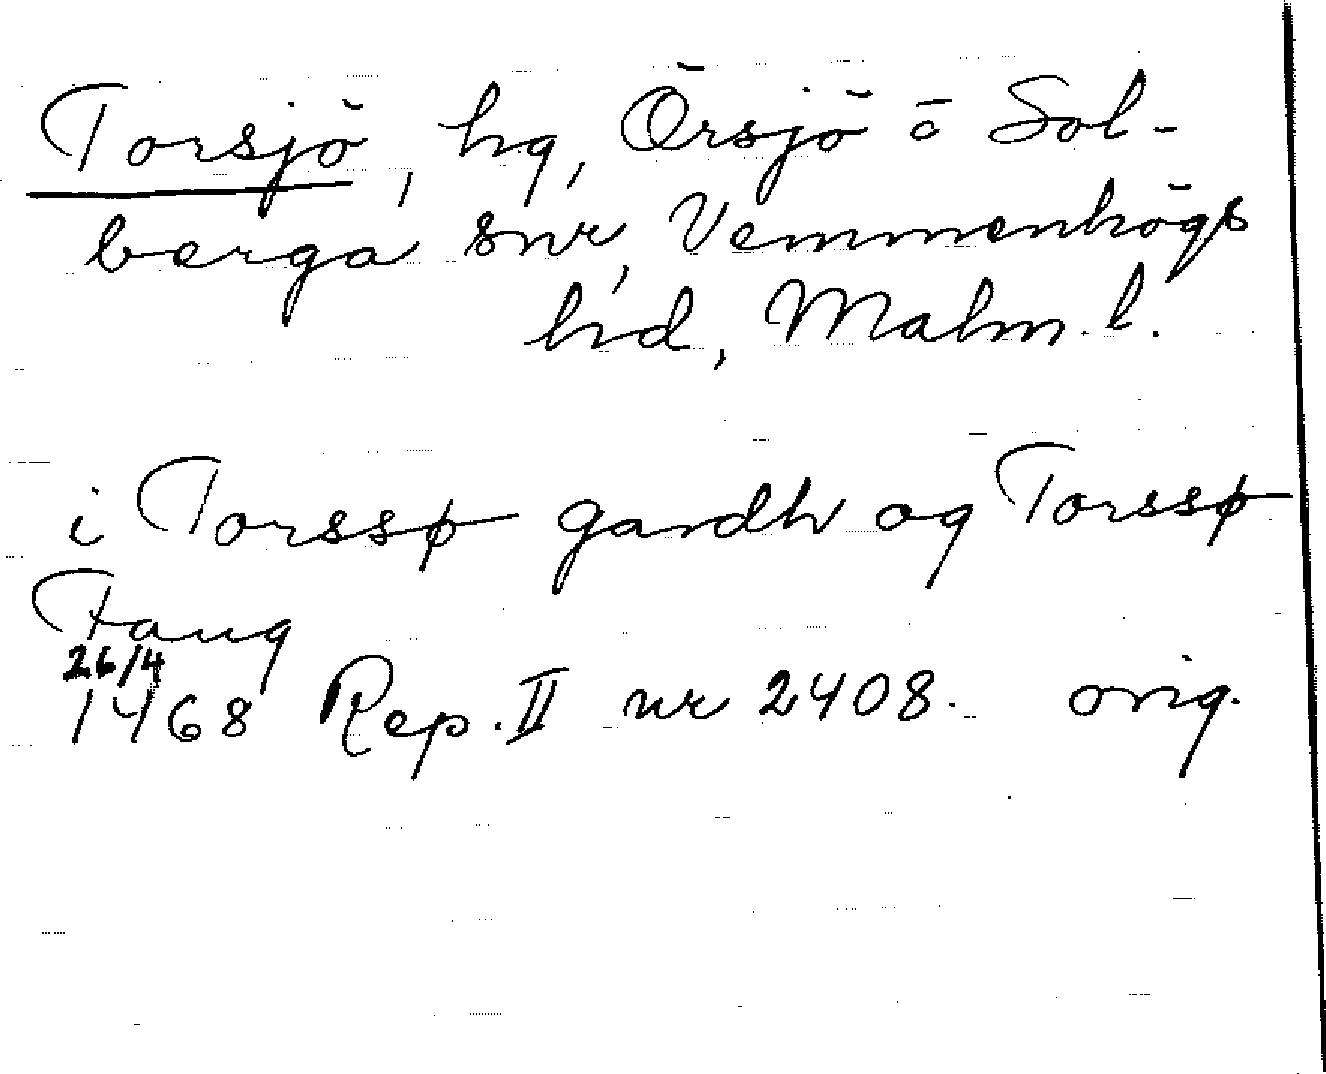 Torsjö, hg, Örsjö o Sol-
berga snr, Vemmenhögs
hd, Malm. l.
i Torssø gardh og Torssø
Fang
26/4
1468 Rep. II nr 2408. orig.